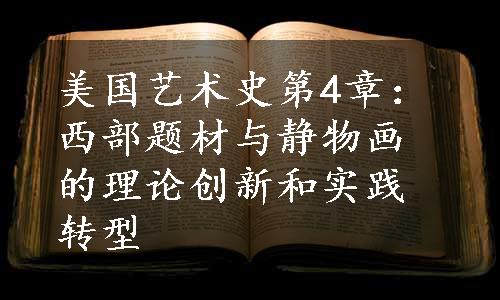 美国艺术史第4章：
西部题材与静物画
的理论创新和实践
转型